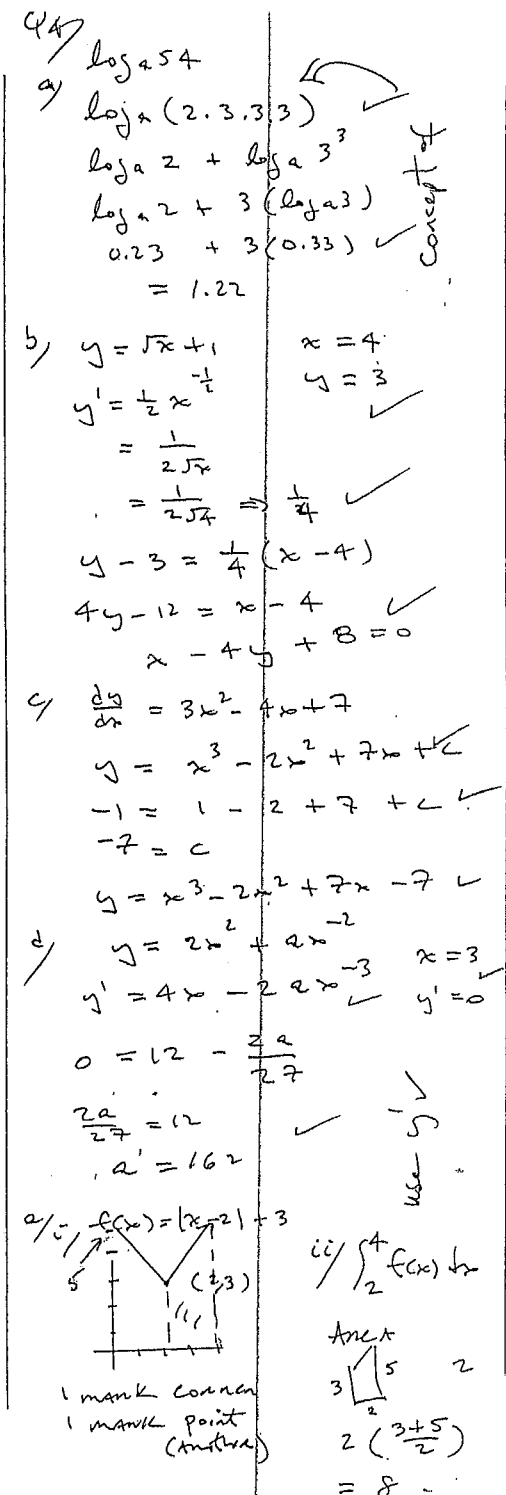 Q4/
a/ log_a 54
log_a (2.3.3.3) ✓
log_a 2 + log_a 3^3
log_a 2 + 3(log_a 3)
0.23 + 3(0.33) ✓
= 1.22
Concept of
b/ y = √x + 1 x = 4
y' = 1/2 x^(-1/2) y = 3 ✓
= 1/(2√x)
= 1/(2√4) => 1/4 ✓
y - 3 = 1/4 (x - 4)
4y - 12 = x - 4 ✓
x - 4y + 8 = 0
c/ dy/dx = 3x^2 - 4x + 7
y = x^3 - 2x^2 + 7x + c ✓
-1 = 1 - 2 + 7 + c ✓
-7 = c
y = x^3 - 2x^2 + 7x - 7 ✓
d/ y = 2x^2 + ax^(-2) x = 3
y' = 4x - 2ax^(-3) ✓ y' = 0 ✓
0 = 12 - 2a/27
2a/27 = 12 ✓
a = 162
use y' ✓
e/i, f(x) = |x-2| + 3
5
(2,3)
1 mark corner
1 mark point
(another)
ii/ ∫_2^4 f(x) dx
Area
3 5 2
2
2 ((3+5)/2)
= 8